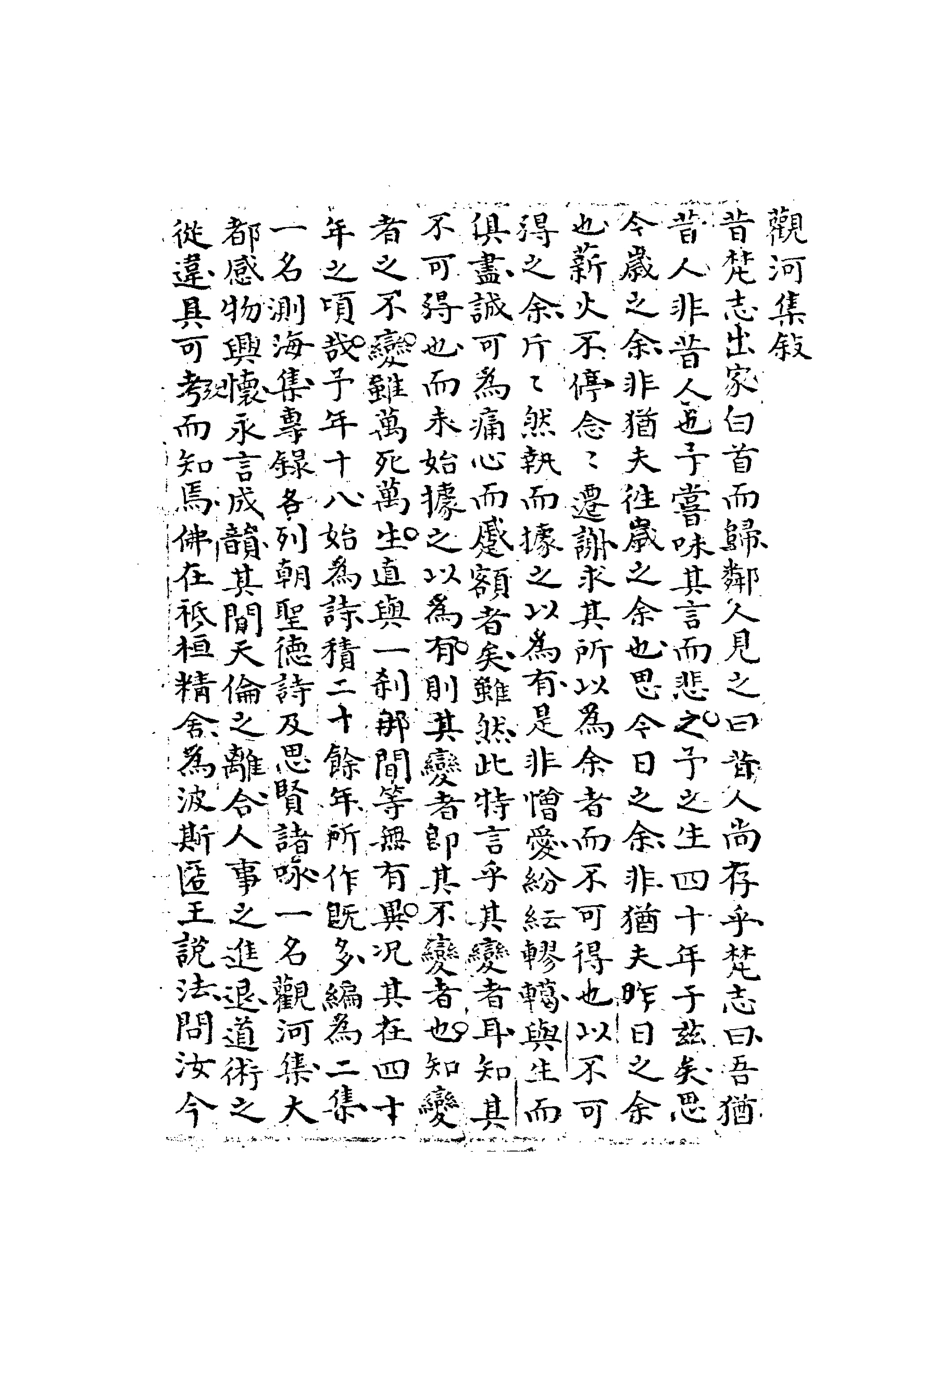 觀河集敍
昔梵志出家白首而歸鄰人見之曰昔人尚存乎梵志曰吾猶
昔人非昔人也予嘗味其言而悲之予之生四十年于茲矣思
今歲之余非猶夫往歲之余也思今日之余非猶夫昨日之余
也薪火不停念〻遷謝求其所以為余者而不可得也以不可
得之余斤〻然執而據之以為有是非憎愛紛紜轇轕與生而
俱盡誠可為痛心而蹙額者矣雖然此特言乎其變者耳知其
不可得也而未始據之以為有則其變者即其不變者也知變
者之不變雖萬死萬生直與一刹那間等無有異况其在四十
年之頃哉予年十八始為詩積二十餘年所作既多編為二集
一名測海集專錄各列朝聖德詩及思賢諸咏一名觀河集大
都感物興懷永言成韻其間天倫之離合人事之進退道術之
從違具可考而知焉佛在祗桓精舍為波斯匿王說法問汝今